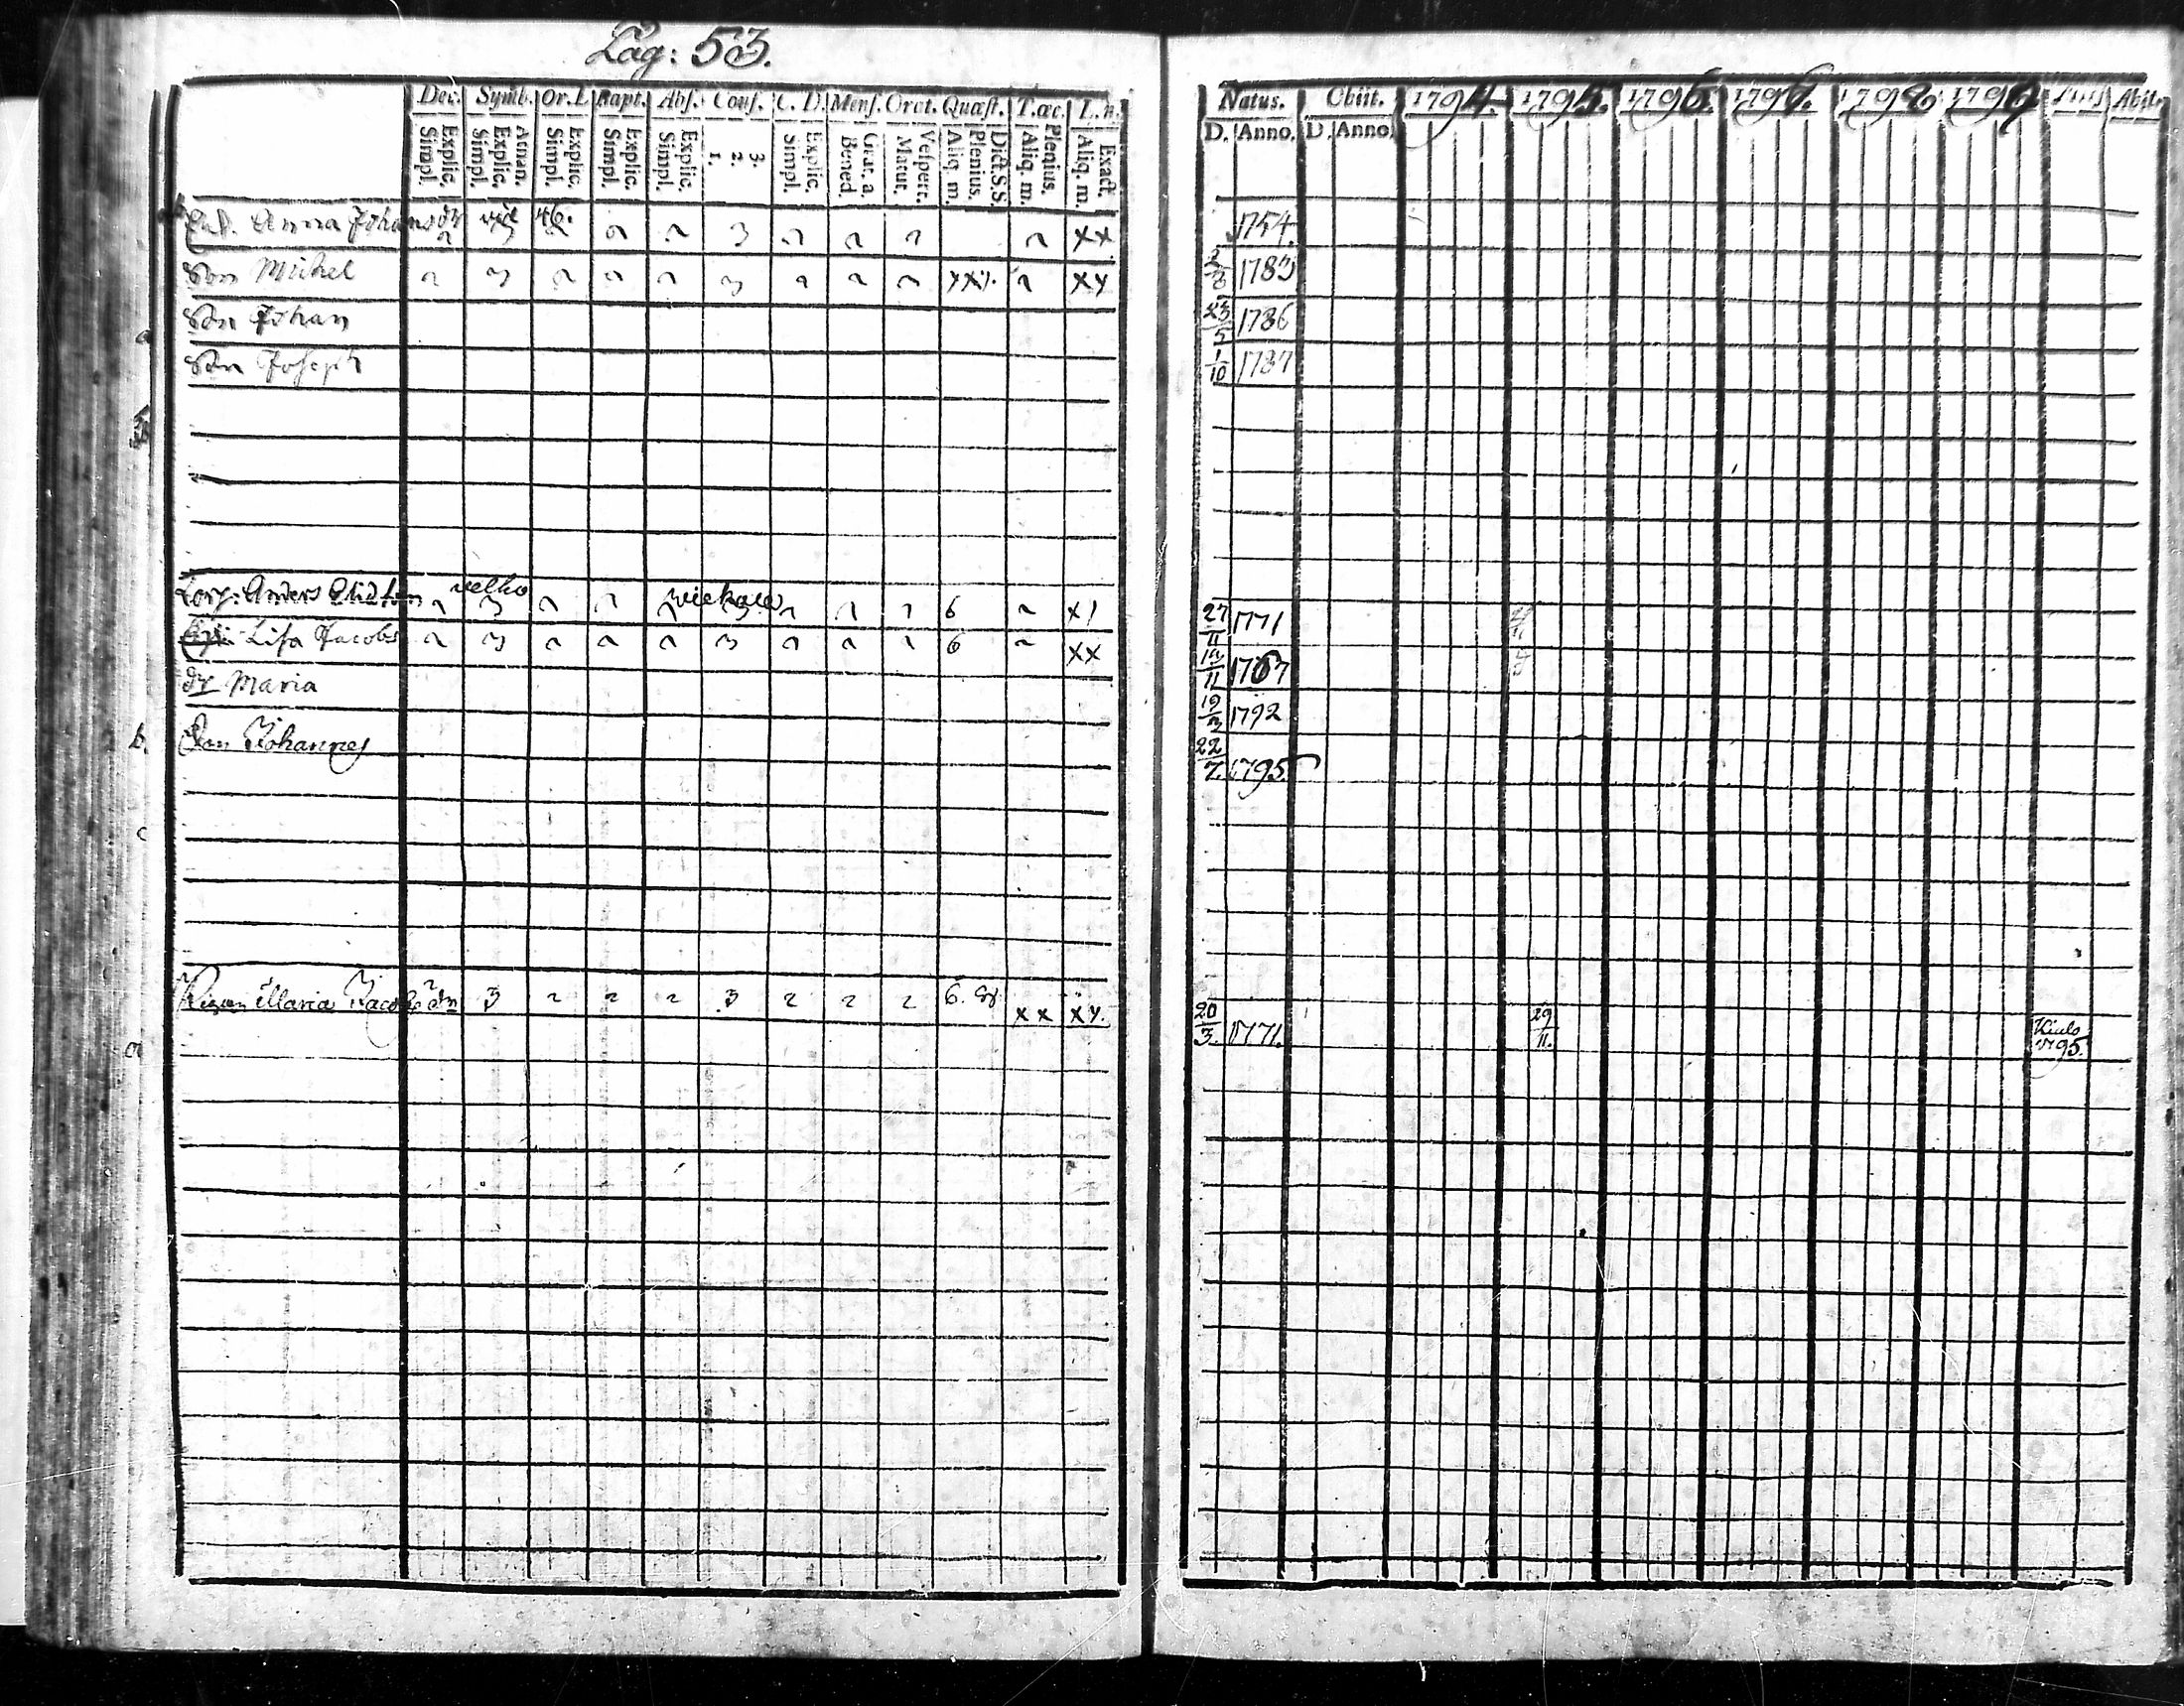 Pag: 53.
Dec. Symb. Or. D Bapt. Abs. Conf. C. D. Mens. Orat. Quæst. T. œc. L. n.
Explic. Simpl. Athan. Explic. Simpl. Explic. Simpl. Explic. Simpl. Explic. Simpl. 3. 2. 1. Explic. Simpl. Grat. a. Bened. Vespert. Matut. Dict. S.S. Plenius. Aliq. m. Plenius. Aliq. m. Exact. Aliq. m.
Natus. Obiit. 1794. 1795. 1796. 1797. 1798 1799 Abiit.
D. Anno. D. Anno.
Anna Johansdr vid 46. 3 XX 1754.
Son Michel 3 3 XX 1783
Son Johan 23/5 1786
Son Joseph 1/10 1787
Anders velho 3 3 6 X1 27/11 1771
Lisa Jacobs 3 3 6 XX 13/11 1767
dr Maria 19/3 1792
b. Son Johannes 22/7. 1795
c
Maria Jacobsdr 3 2 2 2 3 2 2 2 6. XX XY. 20/3. 1771. 29/11. Kiulo 1795.
a